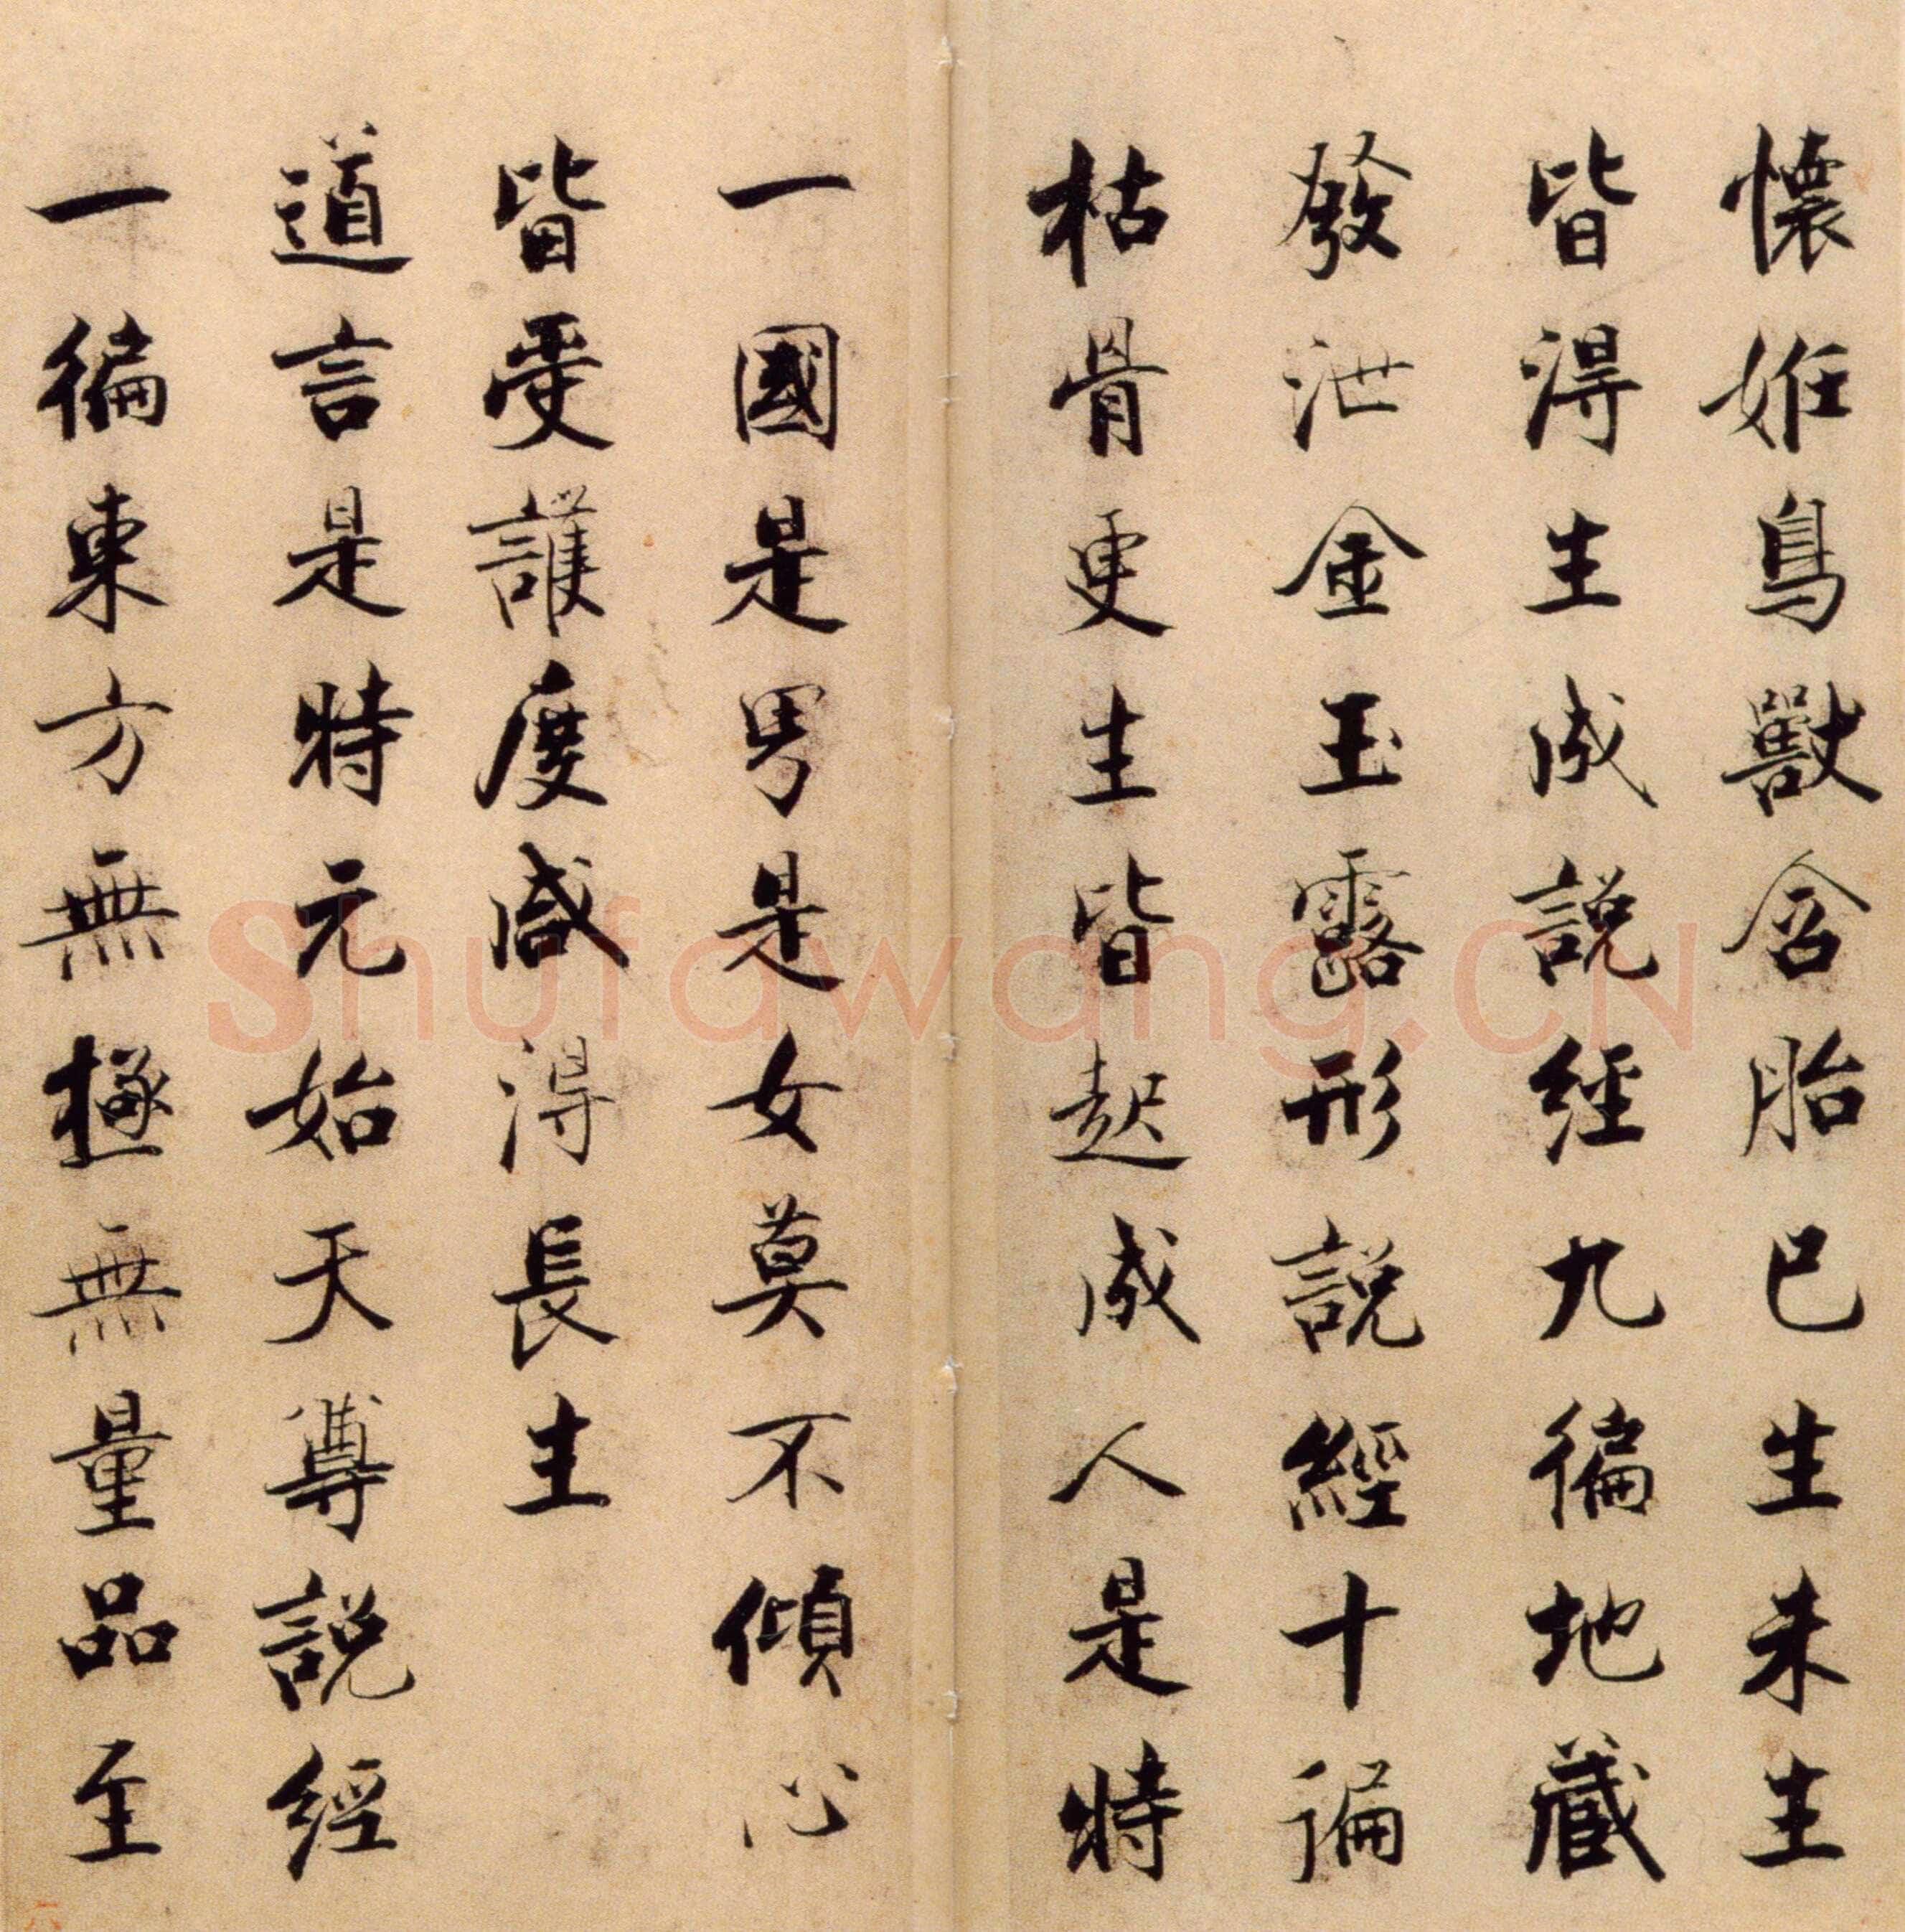 懷姙鳥獸含胎已生未生
皆得生成說經九徧地藏
發泄金玉露形說經十遍
枯骨更生皆起成人是時
一國是男是女莫不傾心
皆受護度咸得長生
道言是時元始天尊說經
一徧東方無極無量品至
shufawang.CN
六